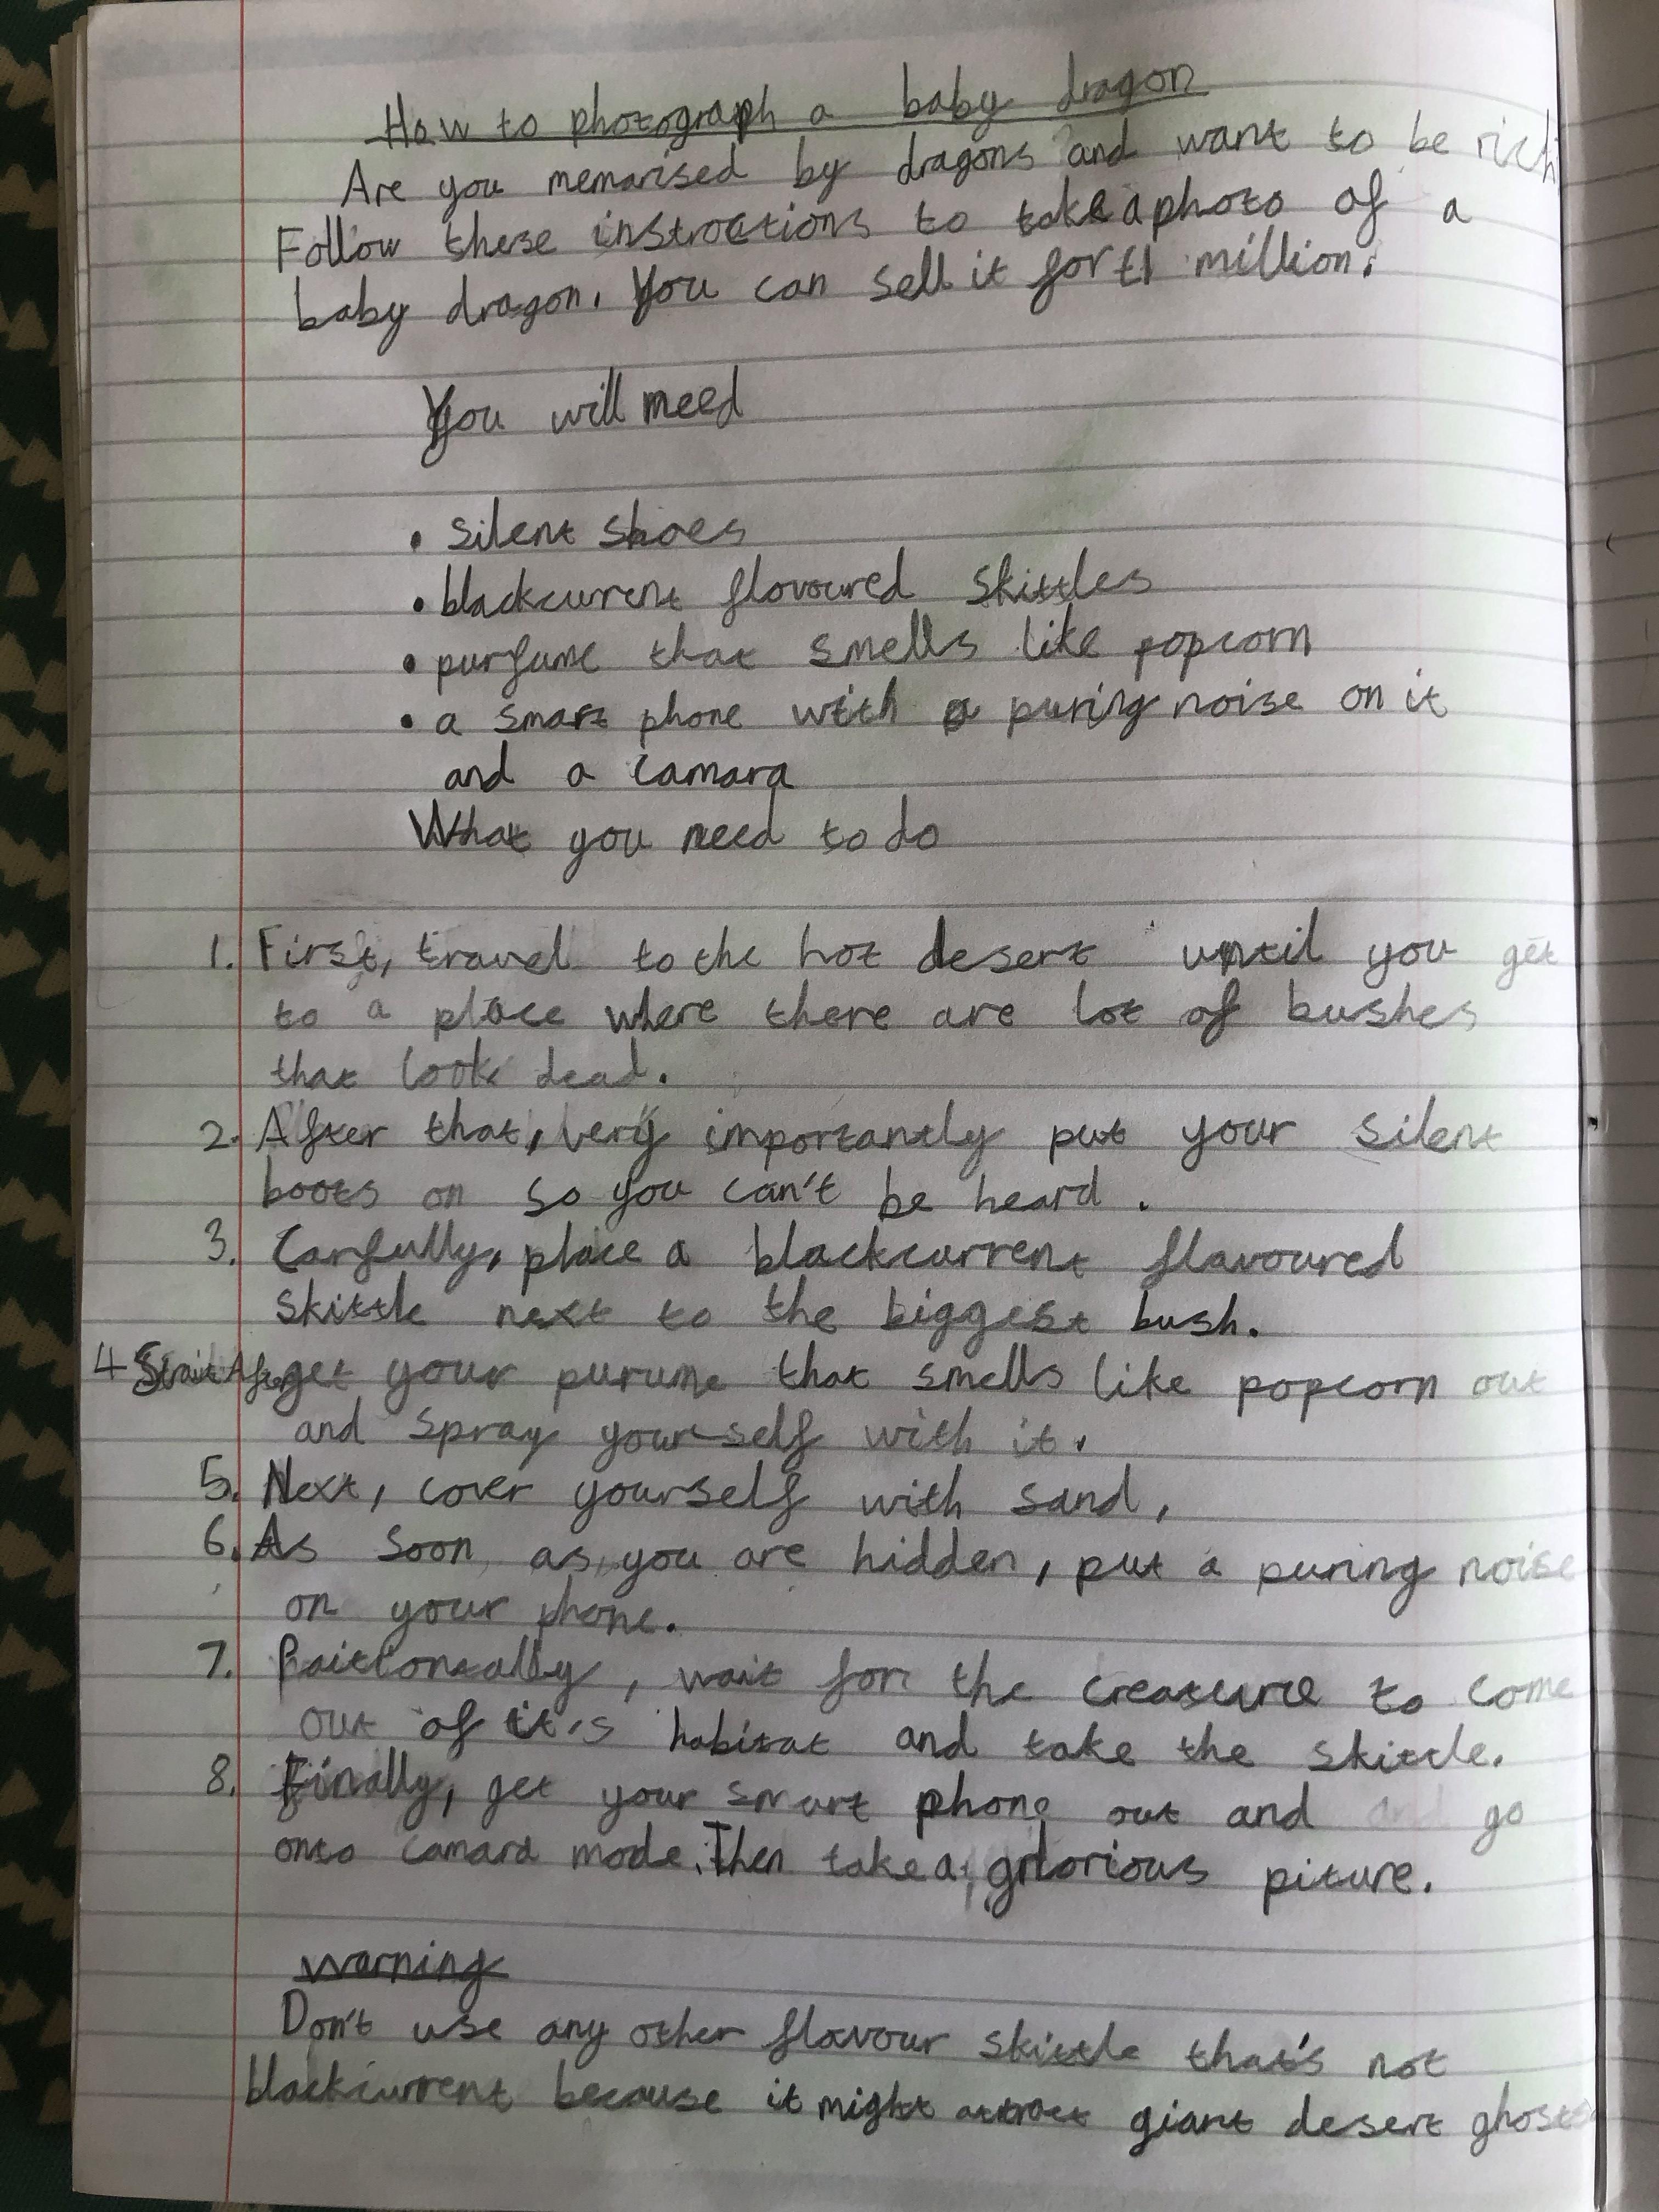 How to photograph a baby dragon
Are you memarised by dragons and want to be rich
Follow these instroctions to take a photo of a
baby dragon. You can sell it for £1 million.
You will need
• silent shoes
• blackcurrent flovoured skittles
• purfume that smells like popcorn
• a smart phone with a puring noise on it
and a camara
What you need to do
1. First, travel to the hot desert until you get
to a place where there are lot of bushes
that look dead.
2. After that, very importantly put your silent
boots on so you can't be heard.
3. Carfully, place a blackcurrent flavoured
skittle next to the biggest bush.
4 Strait After get your purume that smells like popcorn out
and spray yourself with it.
5. Next, cover yourself with sand,
6. As soon as you are hidden, put a puring noise
on your phone.
7. , wait for the creature to come
out of it's habitat and take the skittle.
8. Finally, get your smart phone out and and go
onto camara mode. Then take a glorious picture.
warning
Don't use any other flavour skittle that's not
blackcurrent because it might attract giant desert ghosts